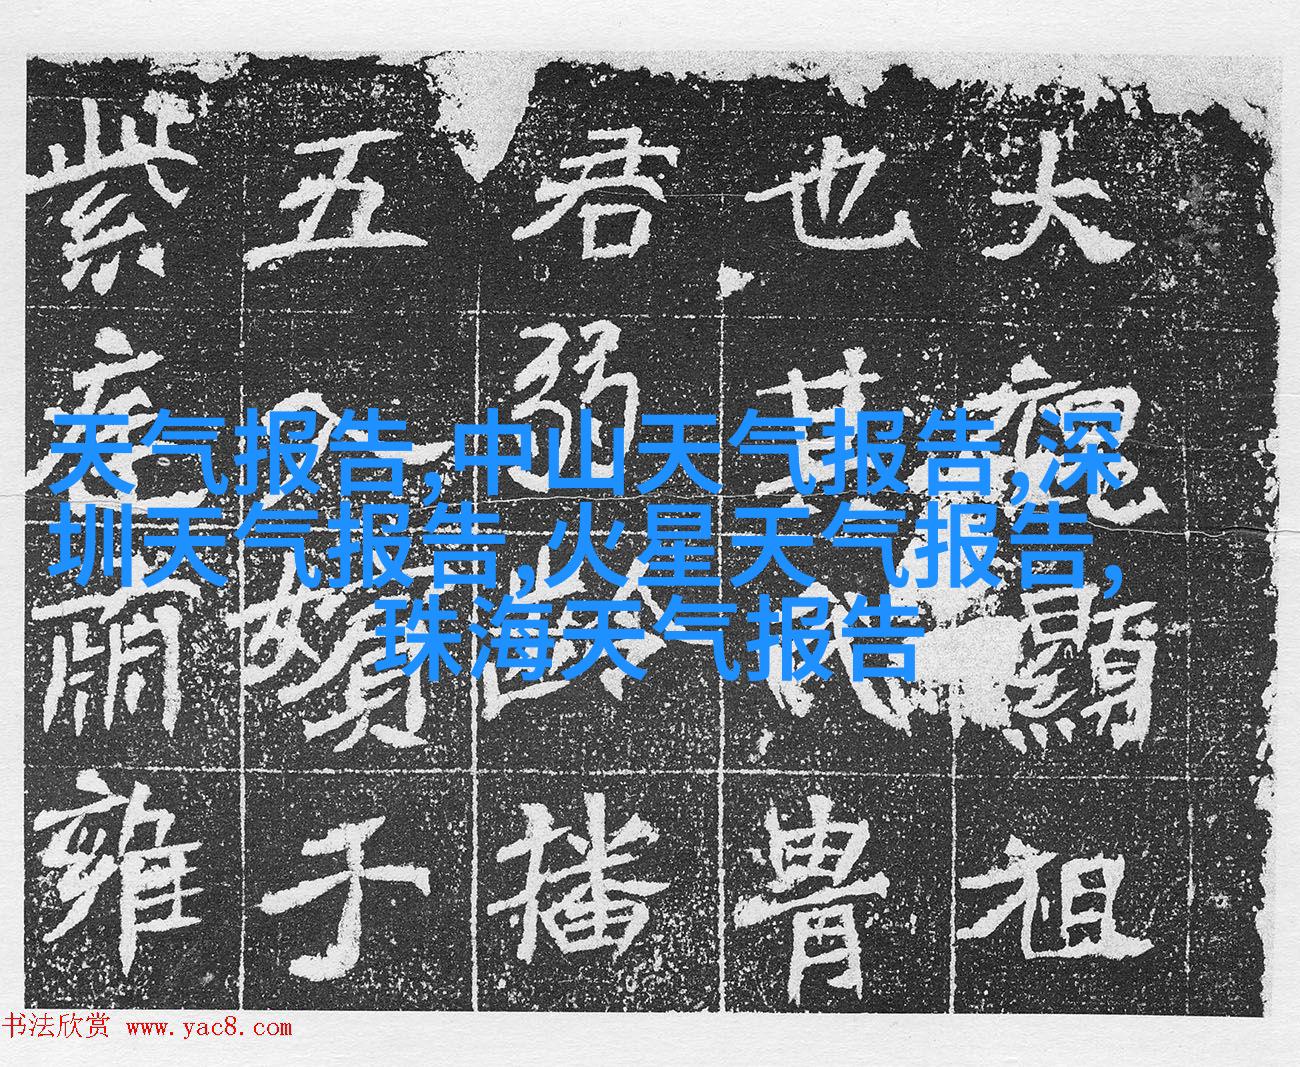 大魏顯祖
也其胄
君弱齡播
五人賀于
紫庭肅雍
天气报告,中山天气报告,深
圳天气报告,火星天气报告,
珠海天气报告
书法欣赏 www.yac8.com